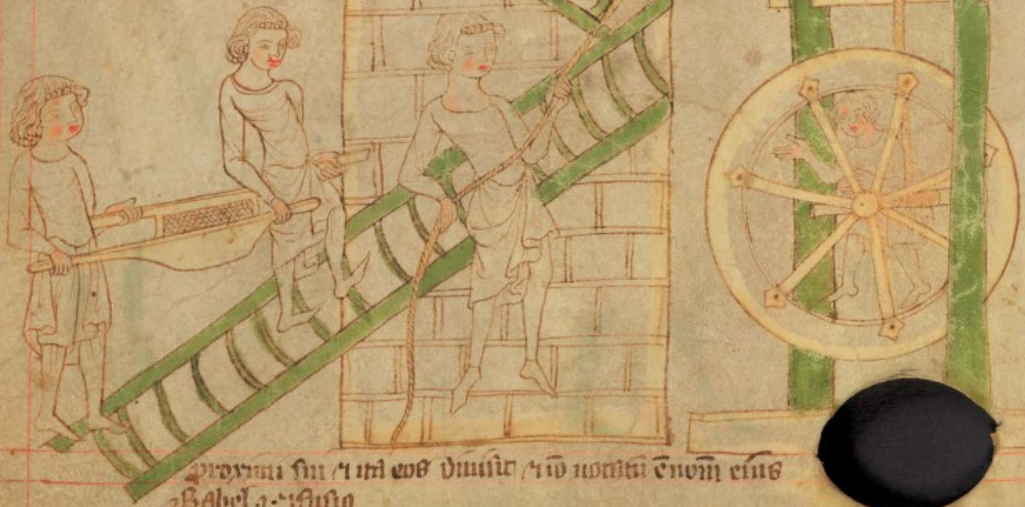 proximi sui et ita eos diuisit et io uocatū ē nom eius
Babel